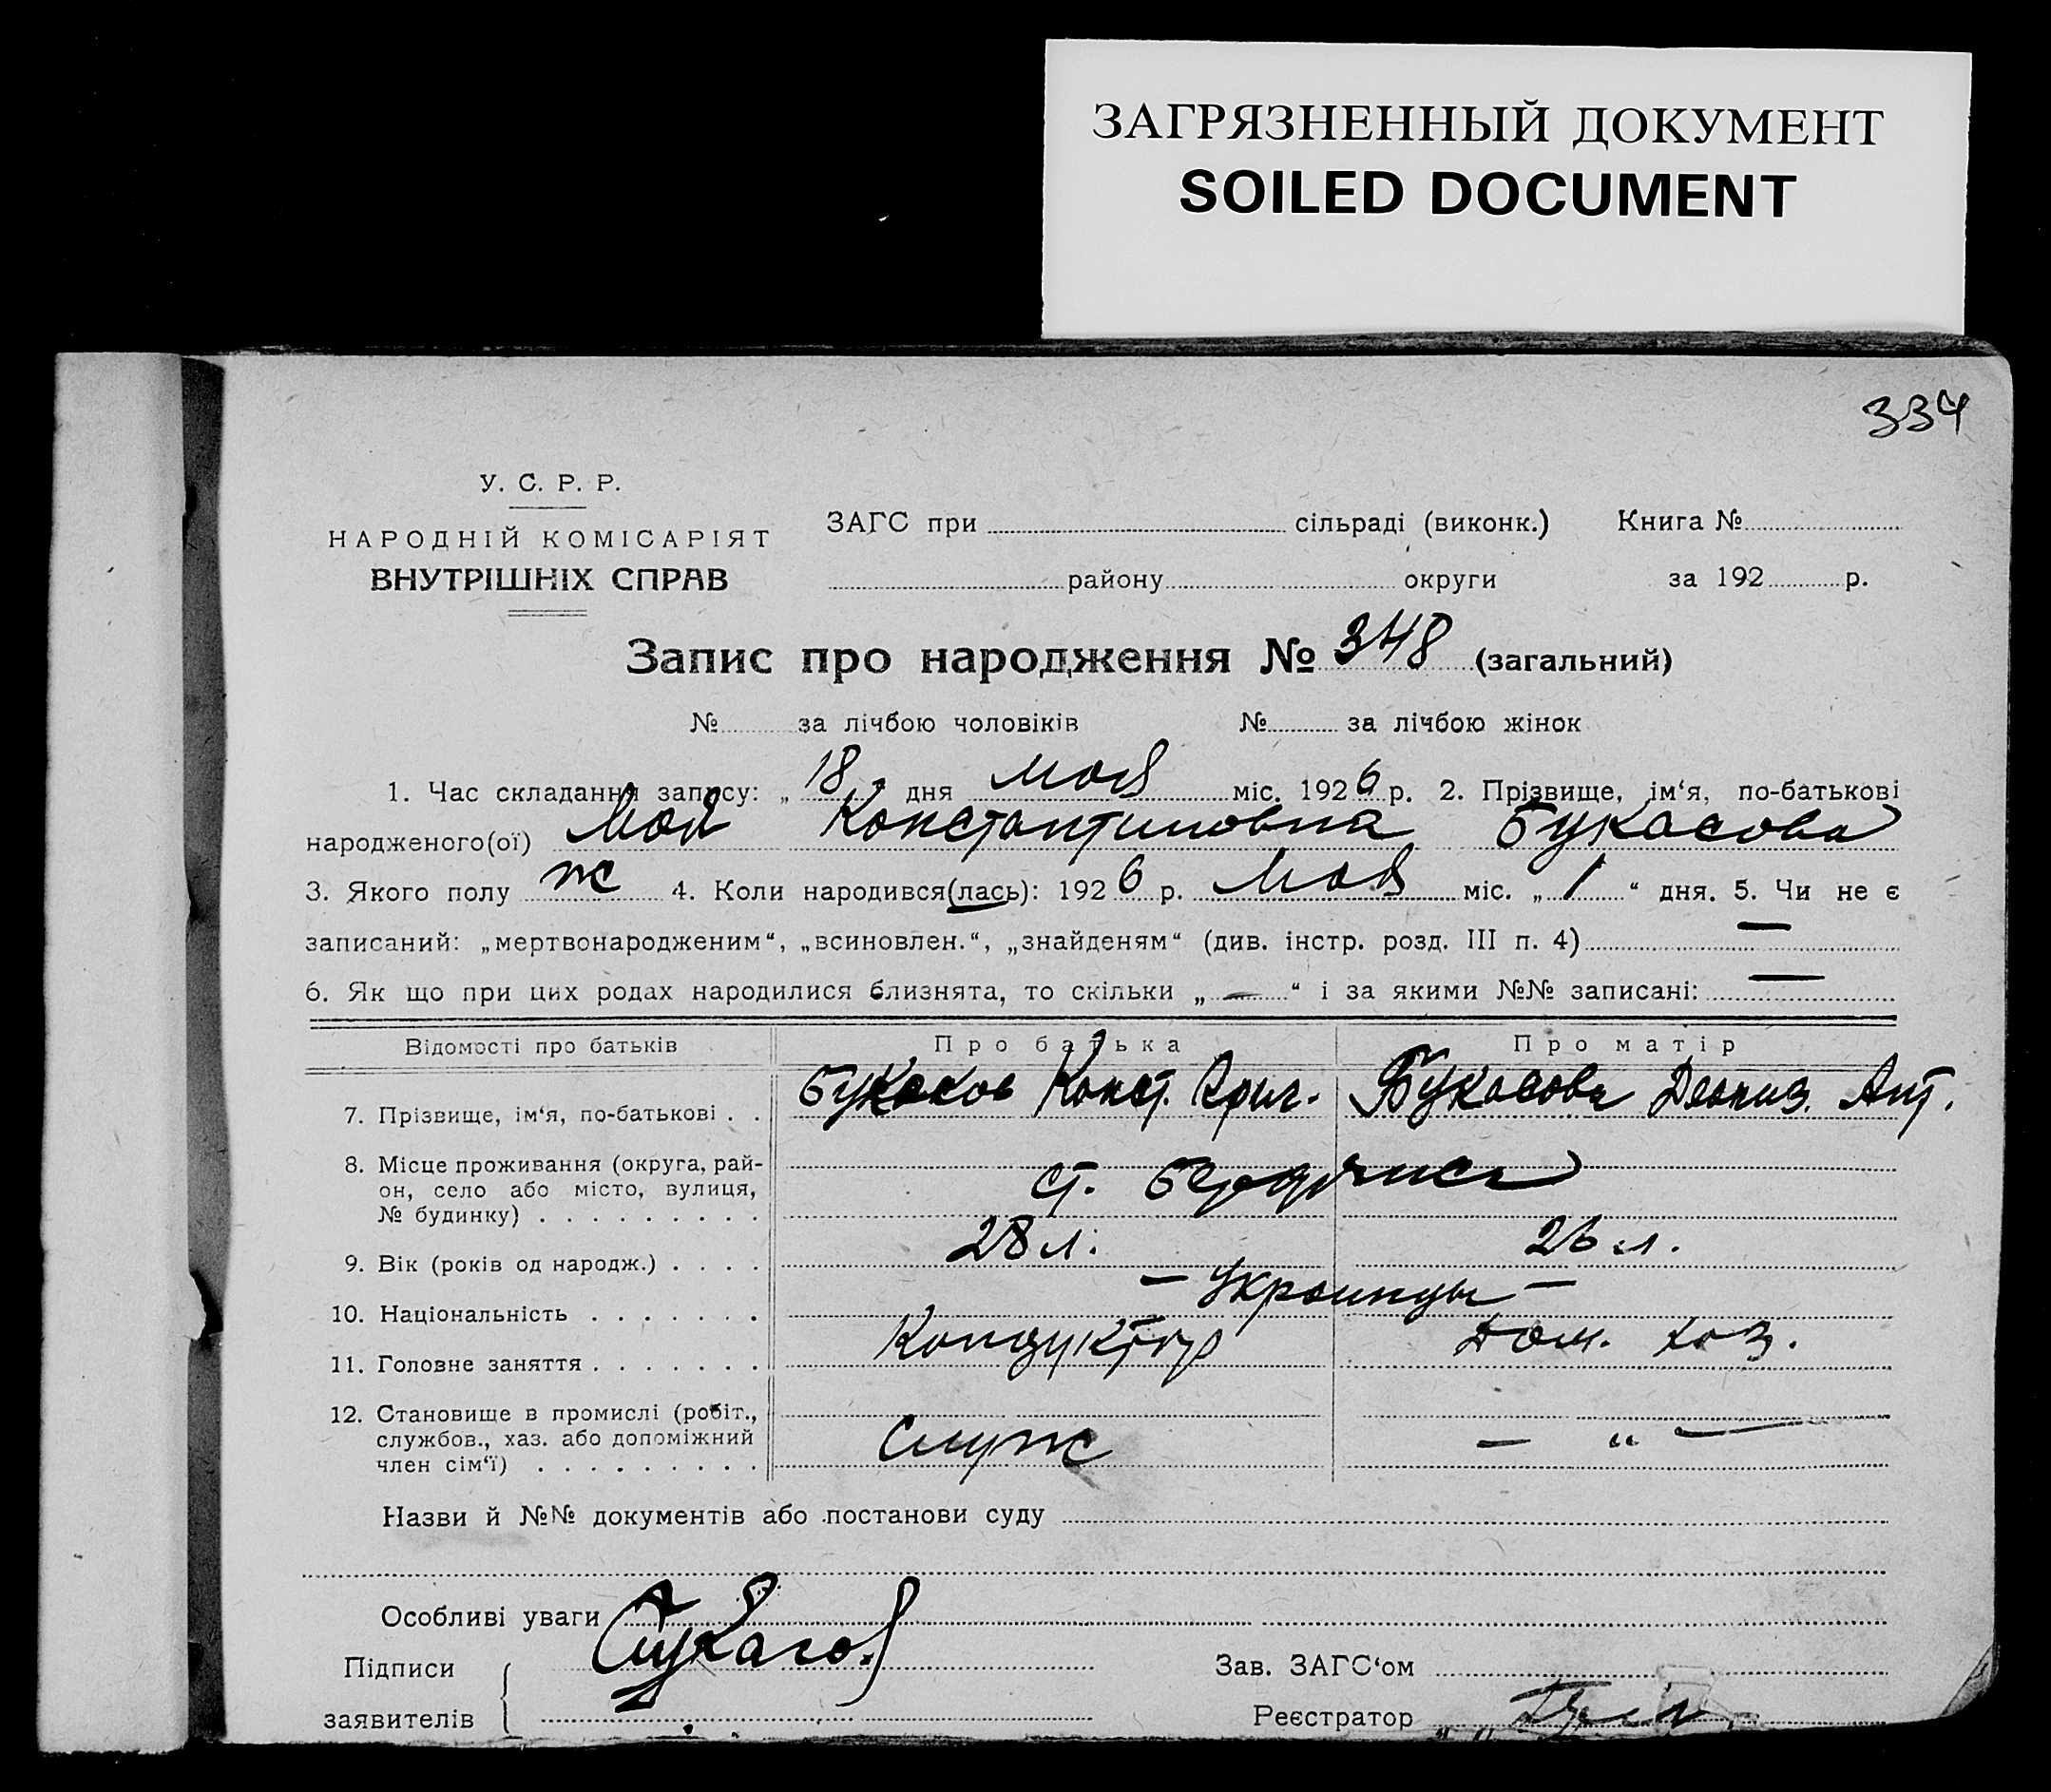 ЗАГРЯЗНЕННЫЙ ДОКУМЕНТ
SOILED DOCUMENT
334
У. С. Р. Р.
НАРОДНІЙ КОМІСАРІЯТ
ВНУТРІШНІХ СПРАВ
ЗАГС при сільраді (виконк.) Книга №
району округи за 192 р.
Запис про народження № 348 (загальний)
№ за лічбою чоловіків № за лічбою жінок
1. Час складання запису: „ 18 " дня мая міс. 1926 р. 2. Прізвище, ім‘я, по-батькові
народженого(ої) Мая Константиновна Букасова
3. Якого полу ж 4. Коли народився(лась): 1926 р. Мая міс. „ 1 “ дня. 5. Чи не є
записаний: „мертвонародженим“, „всиновлен.“, „знайденям“ (див. інстр. розд. III п. 4) —
6. Як що при цих родах народилися близнята, то скільки „ — “ і за якими №№ записані: —
Відомості про батьків Про батька Про матір
7. Прізвище, ім‘я, по-батькові . . Букасов Конст. Григ. Букасова Ант.
8. Місце проживання (округа, рай-
он, село або місто, вулиця,
№ будинку) ст. Бердянск
9. Вік (років од народж.) 28 л. 26 л.
10. Національність — Украинцы —
11. Головне заняття Кондуктор Дом. хоз.
12. Становище в промислі (робіт.,
службов., хаз. або допоміжний
член сім‘ї) Служ — " —
Назви й №№ документів або постанови суду
Особливі уваги
Підписи Зав. ЗАГС‘ом
заявителів Реєстратор